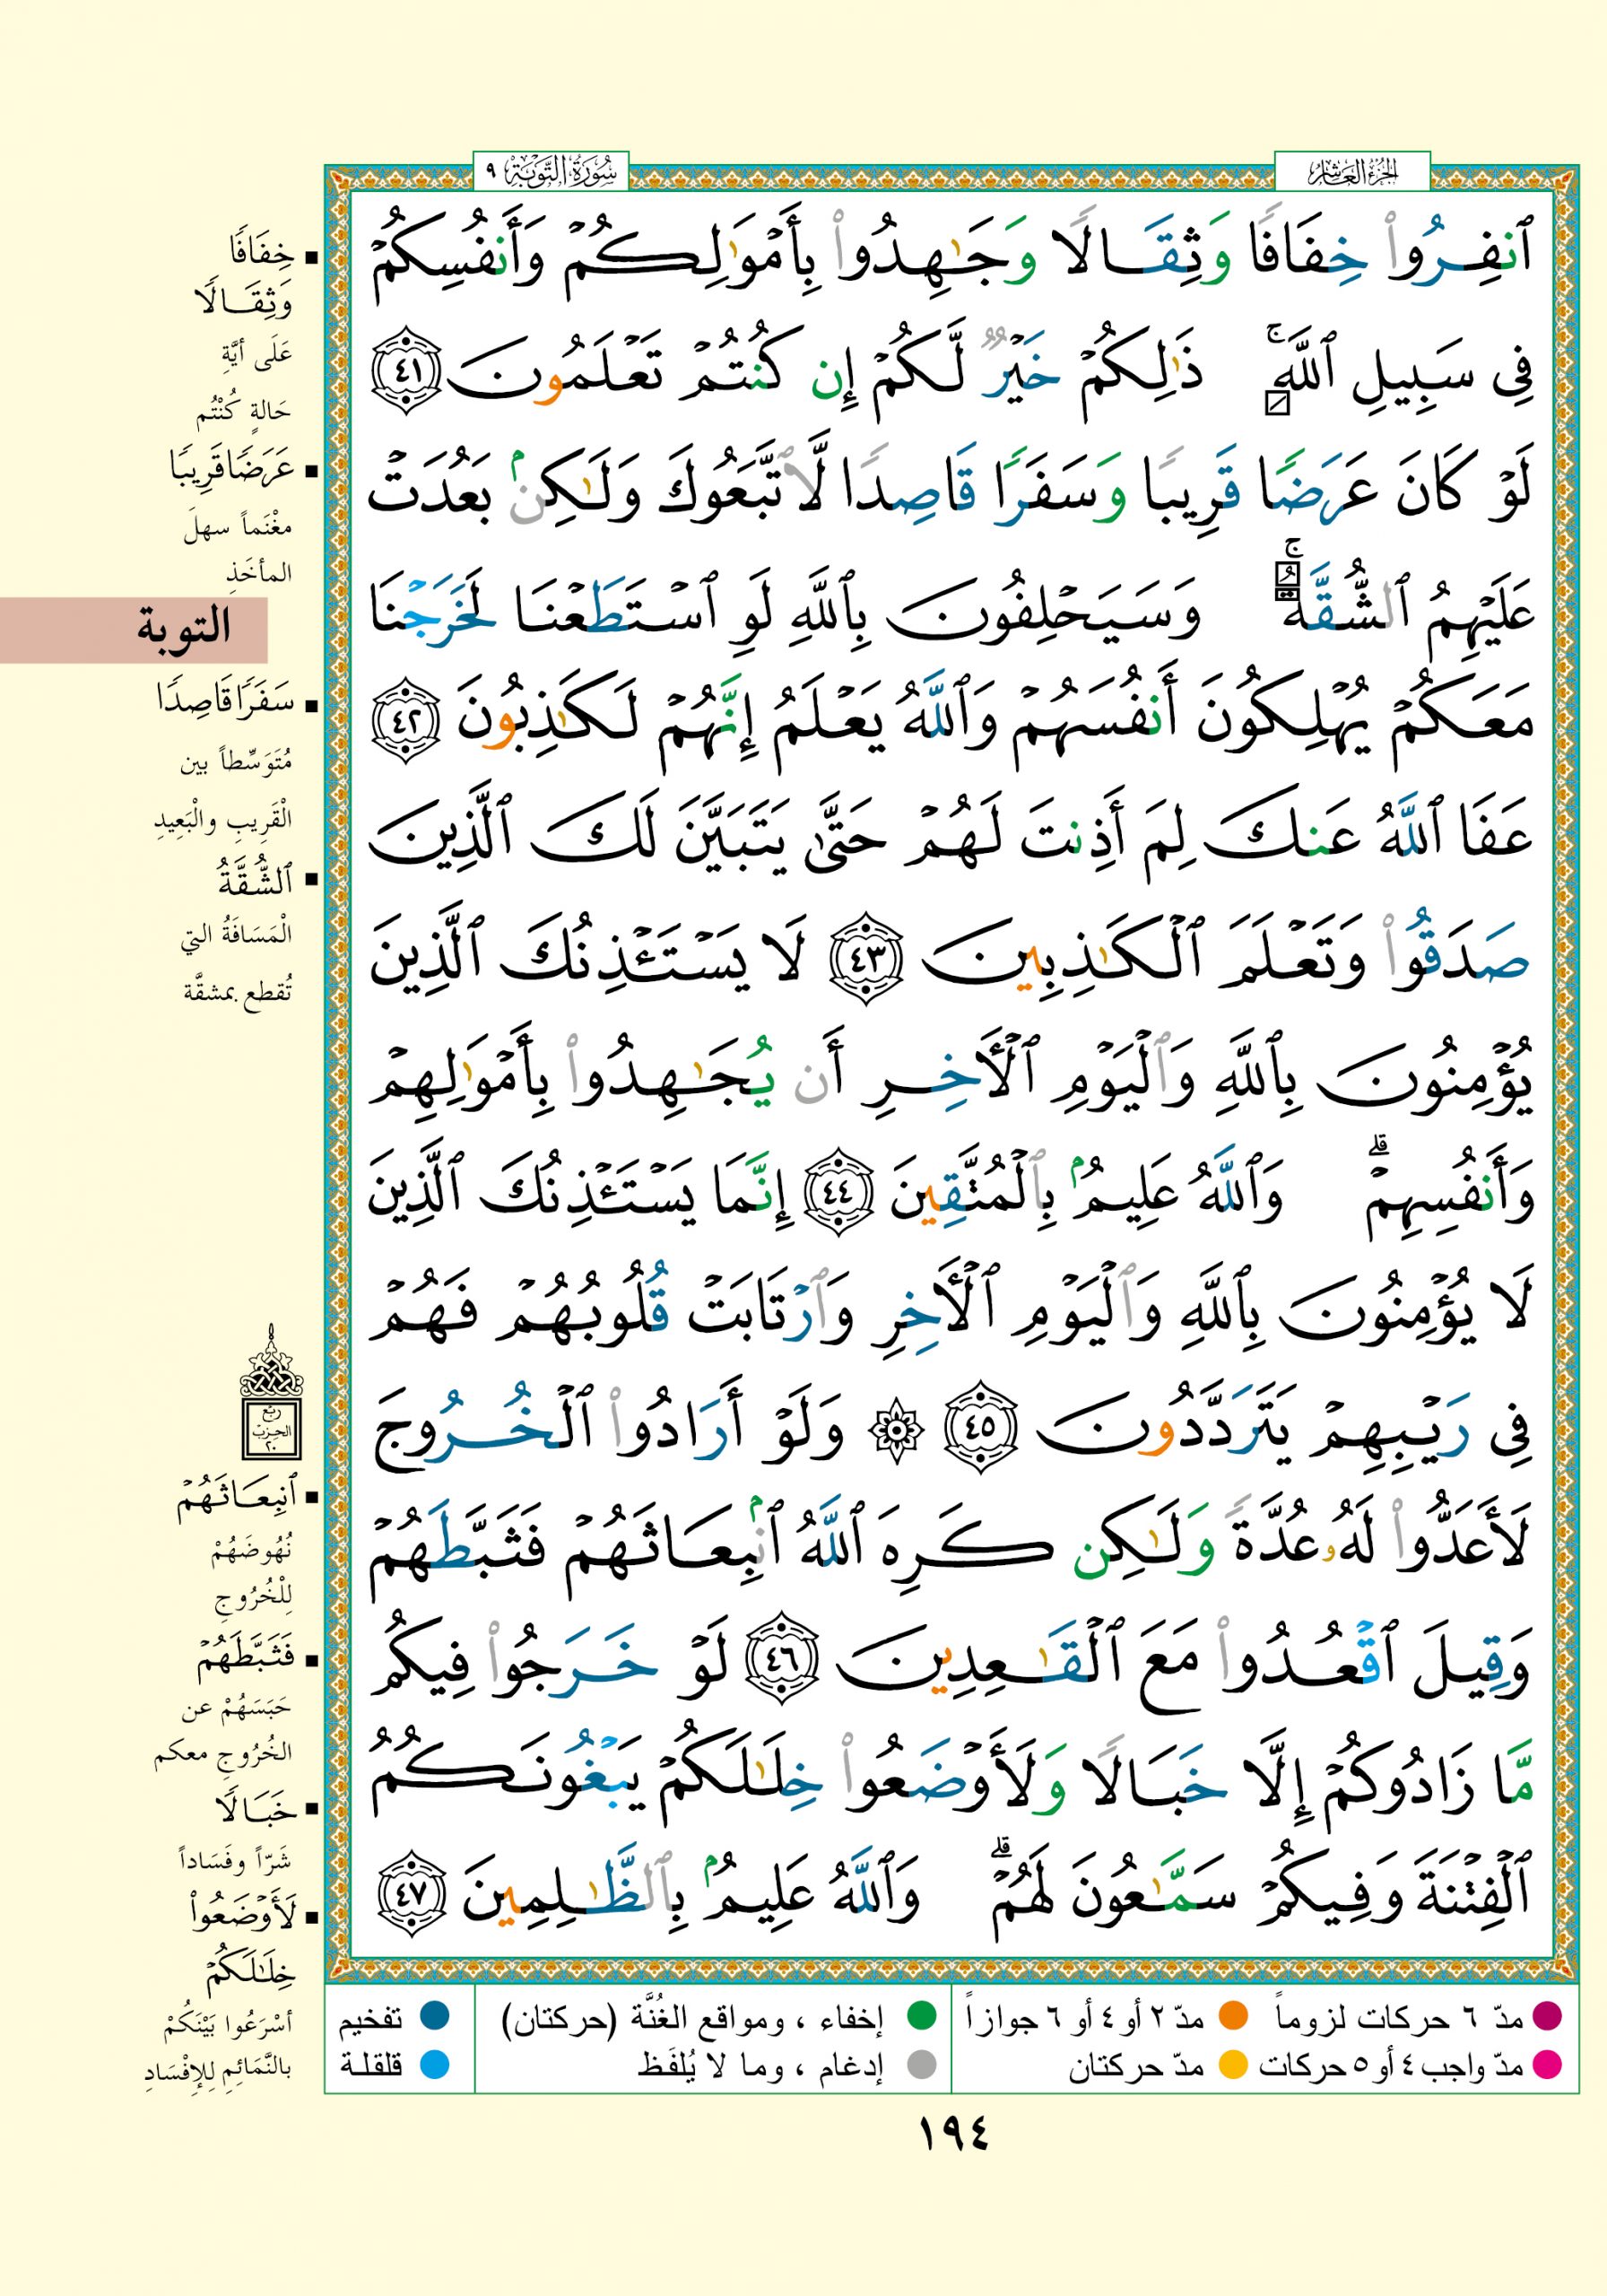 الجزء العاشر
سورة التوبة ٩
ٱنفِرُوا۟ خِفَافًا وَثِقَالًا وَجَٰهِدُوا۟ بِأَمْوَٰلِكُمْ وَأَنفُسِكُمْ
فِى سَبِيلِ ٱللَّهِ ۚ ذَٰلِكُمْ خَيْرٌ لَّكُمْ إِن كُنتُمْ تَعْلَمُونَ ٤١
لَوْ كَانَ عَرَضًا قَرِيبًا وَسَفَرًا قَاصِدًا لَّٱتَّبَعُوكَ وَلَٰكِنۢ بَعُدَتْ
عَلَيْهِمُ ٱلشُّقَّةُ ۚ وَسَيَحْلِفُونَ بِٱللَّهِ لَوِ ٱسْتَطَعْنَا لَخَرَجْنَا
مَعَكُمْ يُهْلِكُونَ أَنفُسَهُمْ وَٱللَّهُ يَعْلَمُ إِنَّهُمْ لَكَٰذِبُونَ ٤٢
عَفَا ٱللَّهُ عَنكَ لِمَ أَذِنتَ لَهُمْ حَتَّىٰ يَتَبَيَّنَ لَكَ ٱلَّذِينَ
صَدَقُوا۟ وَتَعْلَمَ ٱلْكَٰذِبِينَ ٤٣ لَا يَسْتَـْٔذِنُكَ ٱلَّذِينَ
يُؤْمِنُونَ بِٱللَّهِ وَٱلْيَوْمِ ٱلْـَٔاخِرِ أَن يُجَٰهِدُوا۟ بِأَمْوَٰلِهِمْ
وَأَنفُسِهِمْ ۗ وَٱللَّهُ عَلِيمٌۢ بِٱلْمُتَّقِينَ ٤٤ إِنَّمَا يَسْتَـْٔذِنُكَ ٱلَّذِينَ
لَا يُؤْمِنُونَ بِٱللَّهِ وَٱلْيَوْمِ ٱلْـَٔاخِرِ وَٱرْتَابَتْ قُلُوبُهُمْ فَهُمْ
فِى رَيْبِهِمْ يَتَرَدَّدُونَ ٤٥ ۞ وَلَوْ أَرَادُوا۟ ٱلْخُرُوجَ
لَأَعَدُّوا۟ لَهُۥ عُدَّةً وَلَٰكِن كَرِهَ ٱللَّهُ ٱنۢبِعَاثَهُمْ فَثَبَّطَهُمْ
وَقِيلَ ٱقْعُدُوا۟ مَعَ ٱلْقَٰعِدِينَ ٤٦ لَوْ خَرَجُوا۟ فِيكُم
مَّا زَادُوكُمْ إِلَّا خَبَالًا وَلَأَوْضَعُوا۟ خِلَٰلَكُمْ يَبْغُونَكُمُ
ٱلْفِتْنَةَ وَفِيكُمْ سَمَّٰعُونَ لَهُمْ ۗ وَٱللَّهُ عَلِيمٌۢ بِٱلظَّٰلِمِينَ ٤٧
خِفَافًا
وَثِقَالًا
عَلَى أيَّةِ
حَالةٍ كُنْتُم
عَرَضًا قَرِيبًا
مغْنَماً سهلَ
المأخَذِ
التوبة
سَفَرًا قَاصِدًا
مُتَوَسِّطاً بين
الْقَرِيبِ والْبَعِيدِ
ٱلشُّقَّةُ
الْمَسَافَةُ التي
تُقطع بمشقَّة
ربع
الحزب
٢٠
ٱنۢبِعَاثَهُمْ
نُهُوضَهُمْ
لِلْخُرُوجِ
فَثَبَّطَهُمْ
حَبَسَهُمْ عن
الخُرُوجِ معكم
خَبَالًا
شَرّاً وفَسَاداً
لَأَوْضَعُوا۟
خِلَٰلَكُمْ
أسْرَعُوا بَيْنَكُمْ
بالنَّمَائِمِ لِلإفْسَادِ
مدّ ٦ حركات لزوماً
مدّ ٢ أو ٤ أو ٦ جوازاً
إخفاء ، ومواقع الغُنَّة (حركتان)
تفخيم
مدّ واجب ٤ أو ٥ حركات
مدّ حركتان
إدغام ، وما لا يُلفَظ
قلقلة
١٩٤